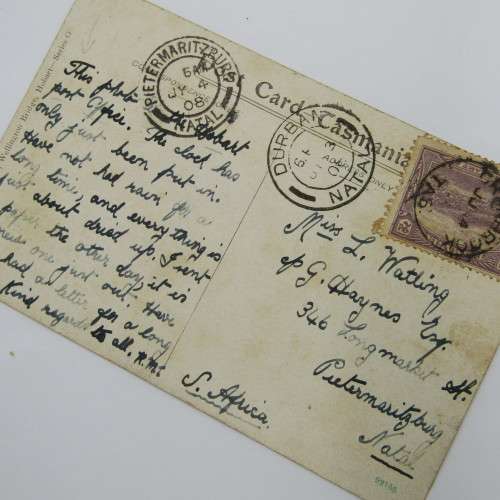 Post Card Tasmania
Wellington Bridge, Hobart - Series O
PIETERMARITZBURG
5 AM
08
NATAL
DURBAN
NATAL
ADDRESS ONLY
TAS
This photo is the Hobart
post office. The clock has
only just been put in.
Have not had rain for a
long time, and everything is
just about dried up. I sent
paper the other day, it is
one just out. Have
had a letter for a long
Kind regards to all.
Miss L. Watling
c/o G. Haynes Esq.
346 Longmarket St.
Pietermaritzburg
Natal
S. Africa.